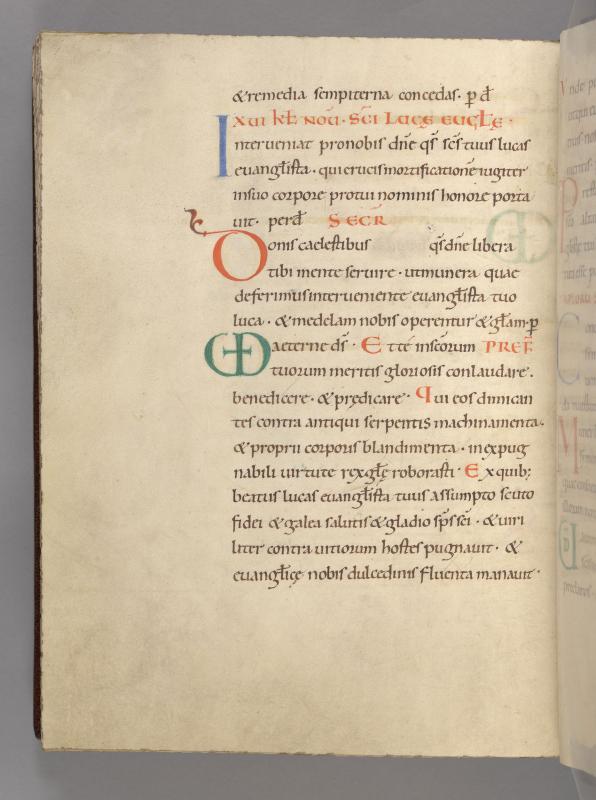 &remedia sempiterna concedas. p d̄
XVI kł NOṼ. SC̄I LVCĘ EVGŁĘ.
Interueniat pronobis dn̄e qs̄ sc̄s tuus lucas
euangl̄ista. qui crucis mortificationē iugiter
insuo corpore protui nominis honore porta
uit. perd̄ SECR̄
Donis caelestibus qs̄ dn̄e libera
tibi mente seruire. utmunera quae
deferimus interueniente euangl̄ista tuo
luca. &medelam nobis operentur &gl̄am. p̄
VD aeterne ds̄. Et te insc̄orum PREF̄
tuorum meritis gloriosis conlaudare.
benedicere. &prędicare. Qui eos dimican
tes contra antiqui serpentis machinamenta.
&proprii corporis blandimenta. inexpug
nabili uirtute rex gl̄ę roborasti. Exquib;
beatus lucas euangl̄ista tuus assumpto scuto
fidei &galea salutis &gladio sp̄s sc̄i. &uiri
liter contra uitiorum hostes pugnauit. &
euangl̄icę nobis dulcedinis fluenta manauit.